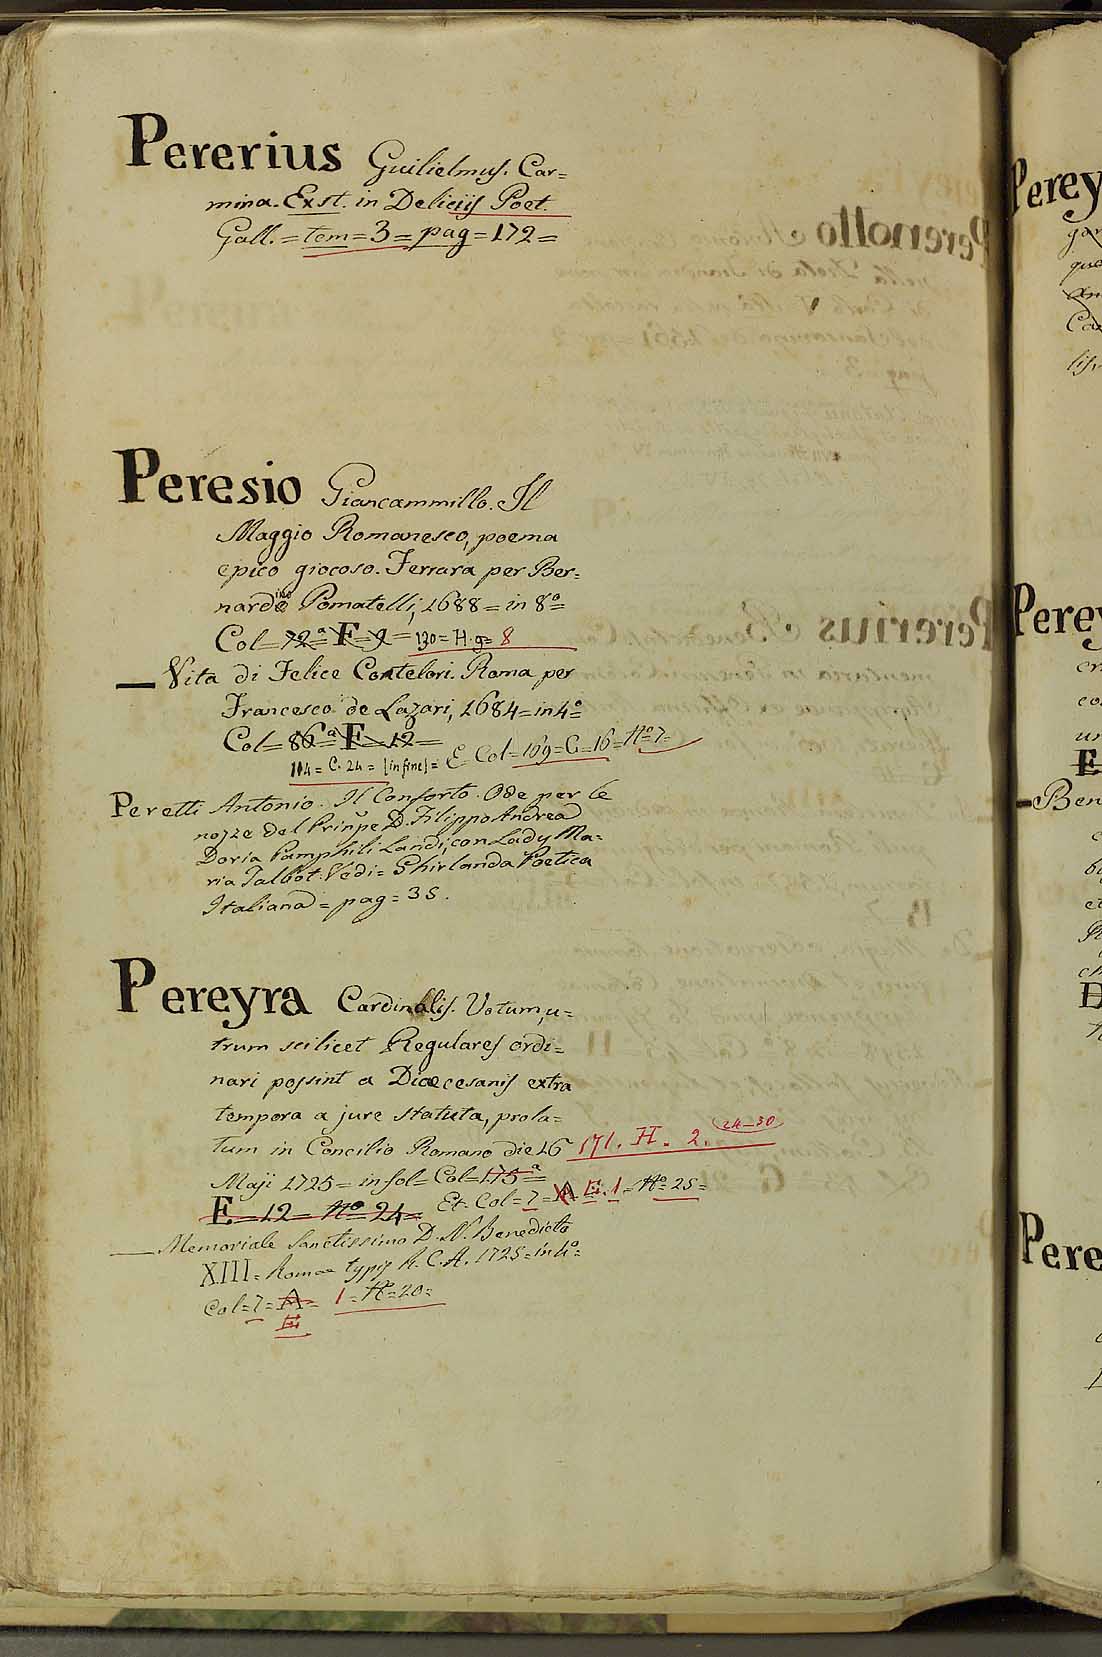 Pererius Guilielmus. Car=
mina. Exst. in Deliciis Poet.
Gall. = tom = 3 = pag = 172 =
Peresio Giancammillo. Il
Maggio Romanesco, poema
epico giocoso. Ferrara per Ber=
nardino Pomatelli, 1688 = in 8º =
Col = 72ª F = 9 = 130 = H. 9 = 8
— Vita di Felice Contelori. Roma per
Francesco de Lazari, 1684 = in 4º =
Col = 86ª = F = 12 =
104 = C. 24 = [in fine] = E Col = 169 = C = 16 = Nº 7 =
Peretti Antonio. Il Conforto. Ode per le
nozze del Prinpe D. Filippo Andrea
Doria Pamphili Landi, con Lady Ma=
ria Talbot. Vedi = Ghirlanda Poetica
Italiana = pag = 35.
Pereyra Cardinalis. Votum, u=
trum scilicet Regulares ordi=
nari possint a Diœcesanis extra
tempora a jure statuta, prola=
tum in Concilio Romano die 16 171. H. 2. 24-30
Maji 1725 = in fol = Col = 175ª =
E = 12 = Nº 24 = Et. Col = 7 = A E. 1 = Nº 25 =
— Memoriale Sanctissimo D. N. Benedicto
XIII = Romæ typis R. C. A. 1725 = in 4º =
Col = 7 = A = 1 = Nº = 20 =
E
Perey
Perey
E
— Ben
Pere